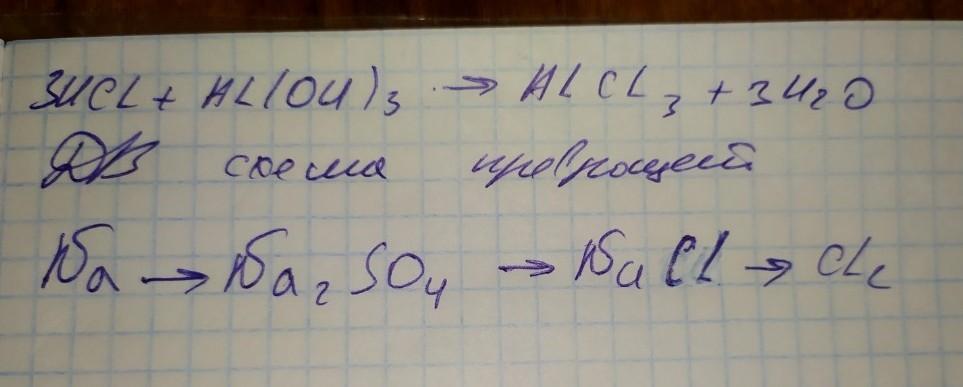 3HCL + AL(OH)3 → ALCL3 + 3H2O
ДЗ схема превращений
Na → Na2SO4 → NaCL → CL2